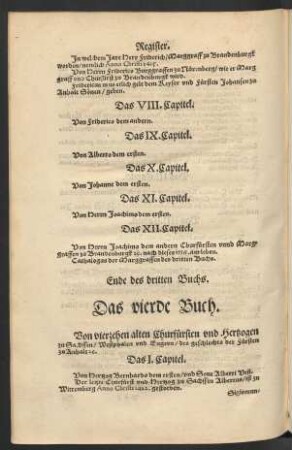 Register.
In welchem Jare Herr Friderich / Marggraff zu Brandenburgk
worden / nemlich Anno Christi 1415.
Von Herrn Friderico Burggraffen zu Nörenberg / wie er Marg
graff vnd Churfürst zu Brandenburgk
Fridericus
Anhalt Sönen / geben.
Das VIII. Capitel.
Von Friderico dem andern.
Das IX. Capitel.
Von Alberto dem ersten.
Das X. Capitel.
Von Johanne dem ersten.
Das XI. Capitel.
Von Herrn Joachimo dem ersten.
Das XII. Capitel.
Von Herrn Joachimo dem andern Churfürsten vnnd Marg
graffen zu Brandenburgk
Cathalogus der Marggraffen des dritten Buchs.
Ende des dritten Buchs.
Das vierde Buch.
Von vierzehen alten Churfürsten vnd Hertzogen
zu Sachssen / Westphalen vnd Engern / des geschlechts der Fürsten
zu Anhalt ꝛc.
Das I. Capitel.
Von Hertzog Bernhardo dem ersten / vnd
Der letzte Churfürst vnd Hertzog zu Sachssen Albertus / ist zu
Wittemberg Anno Christi 1422. gestorben.